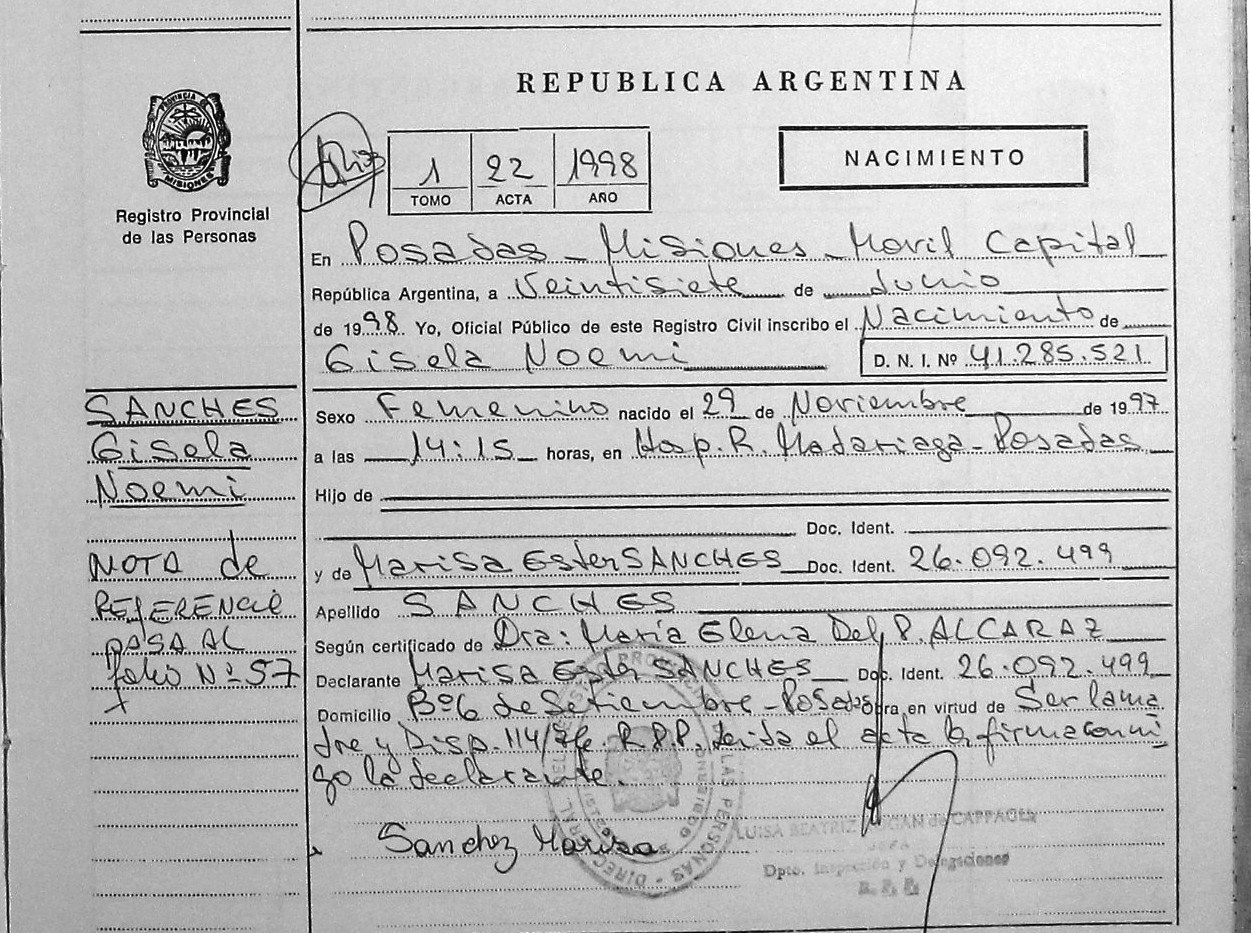 REPUBLICA ARGENTINA
PROVINCIA DE MISIONES
Registro Provincial
de las Personas
1 22 1998
TOMO ACTA AÑO
NACIMIENTO
En Posadas - Misiones - Movil Capital
República Argentina, a Veintisiete de Junio
de 1998. Yo, Oficial Público de este Registro Civil inscribo el Nacimiento de
Gisela Noemi D. N. I. Nº 41.285.521
SANCHES
Gisela
Noemi
NOTA de
REFERENCIA
PASA AL
folio Nº 57
Sexo Femenino nacido el 29 de Noviembre de 1997
a las 14:15 horas, en Hosp. R. Madariaga - Posadas
Hijo de
Doc. Ident.
y de Marisa Ester SANCHES Doc. Ident. 26.092.499
Apellido SANCHES
Según certificado de Dra: María Elena Del P. ALCARAZ
Declarante Marisa Ester SANCHES Doc. Ident. 26.092.499
Domicilio Bº 6 de Setiembre - Posadas Obra en virtud de Ser la ma
dre y Disp. 114/ R.P.P. Leida el acta la firma conmi
go la declarante.
Sanchez Marisa
LUISA BEATRIZ de CAPPAGLI
Jefe
Dpto. Inspección y Delegaciones
R. P. P.